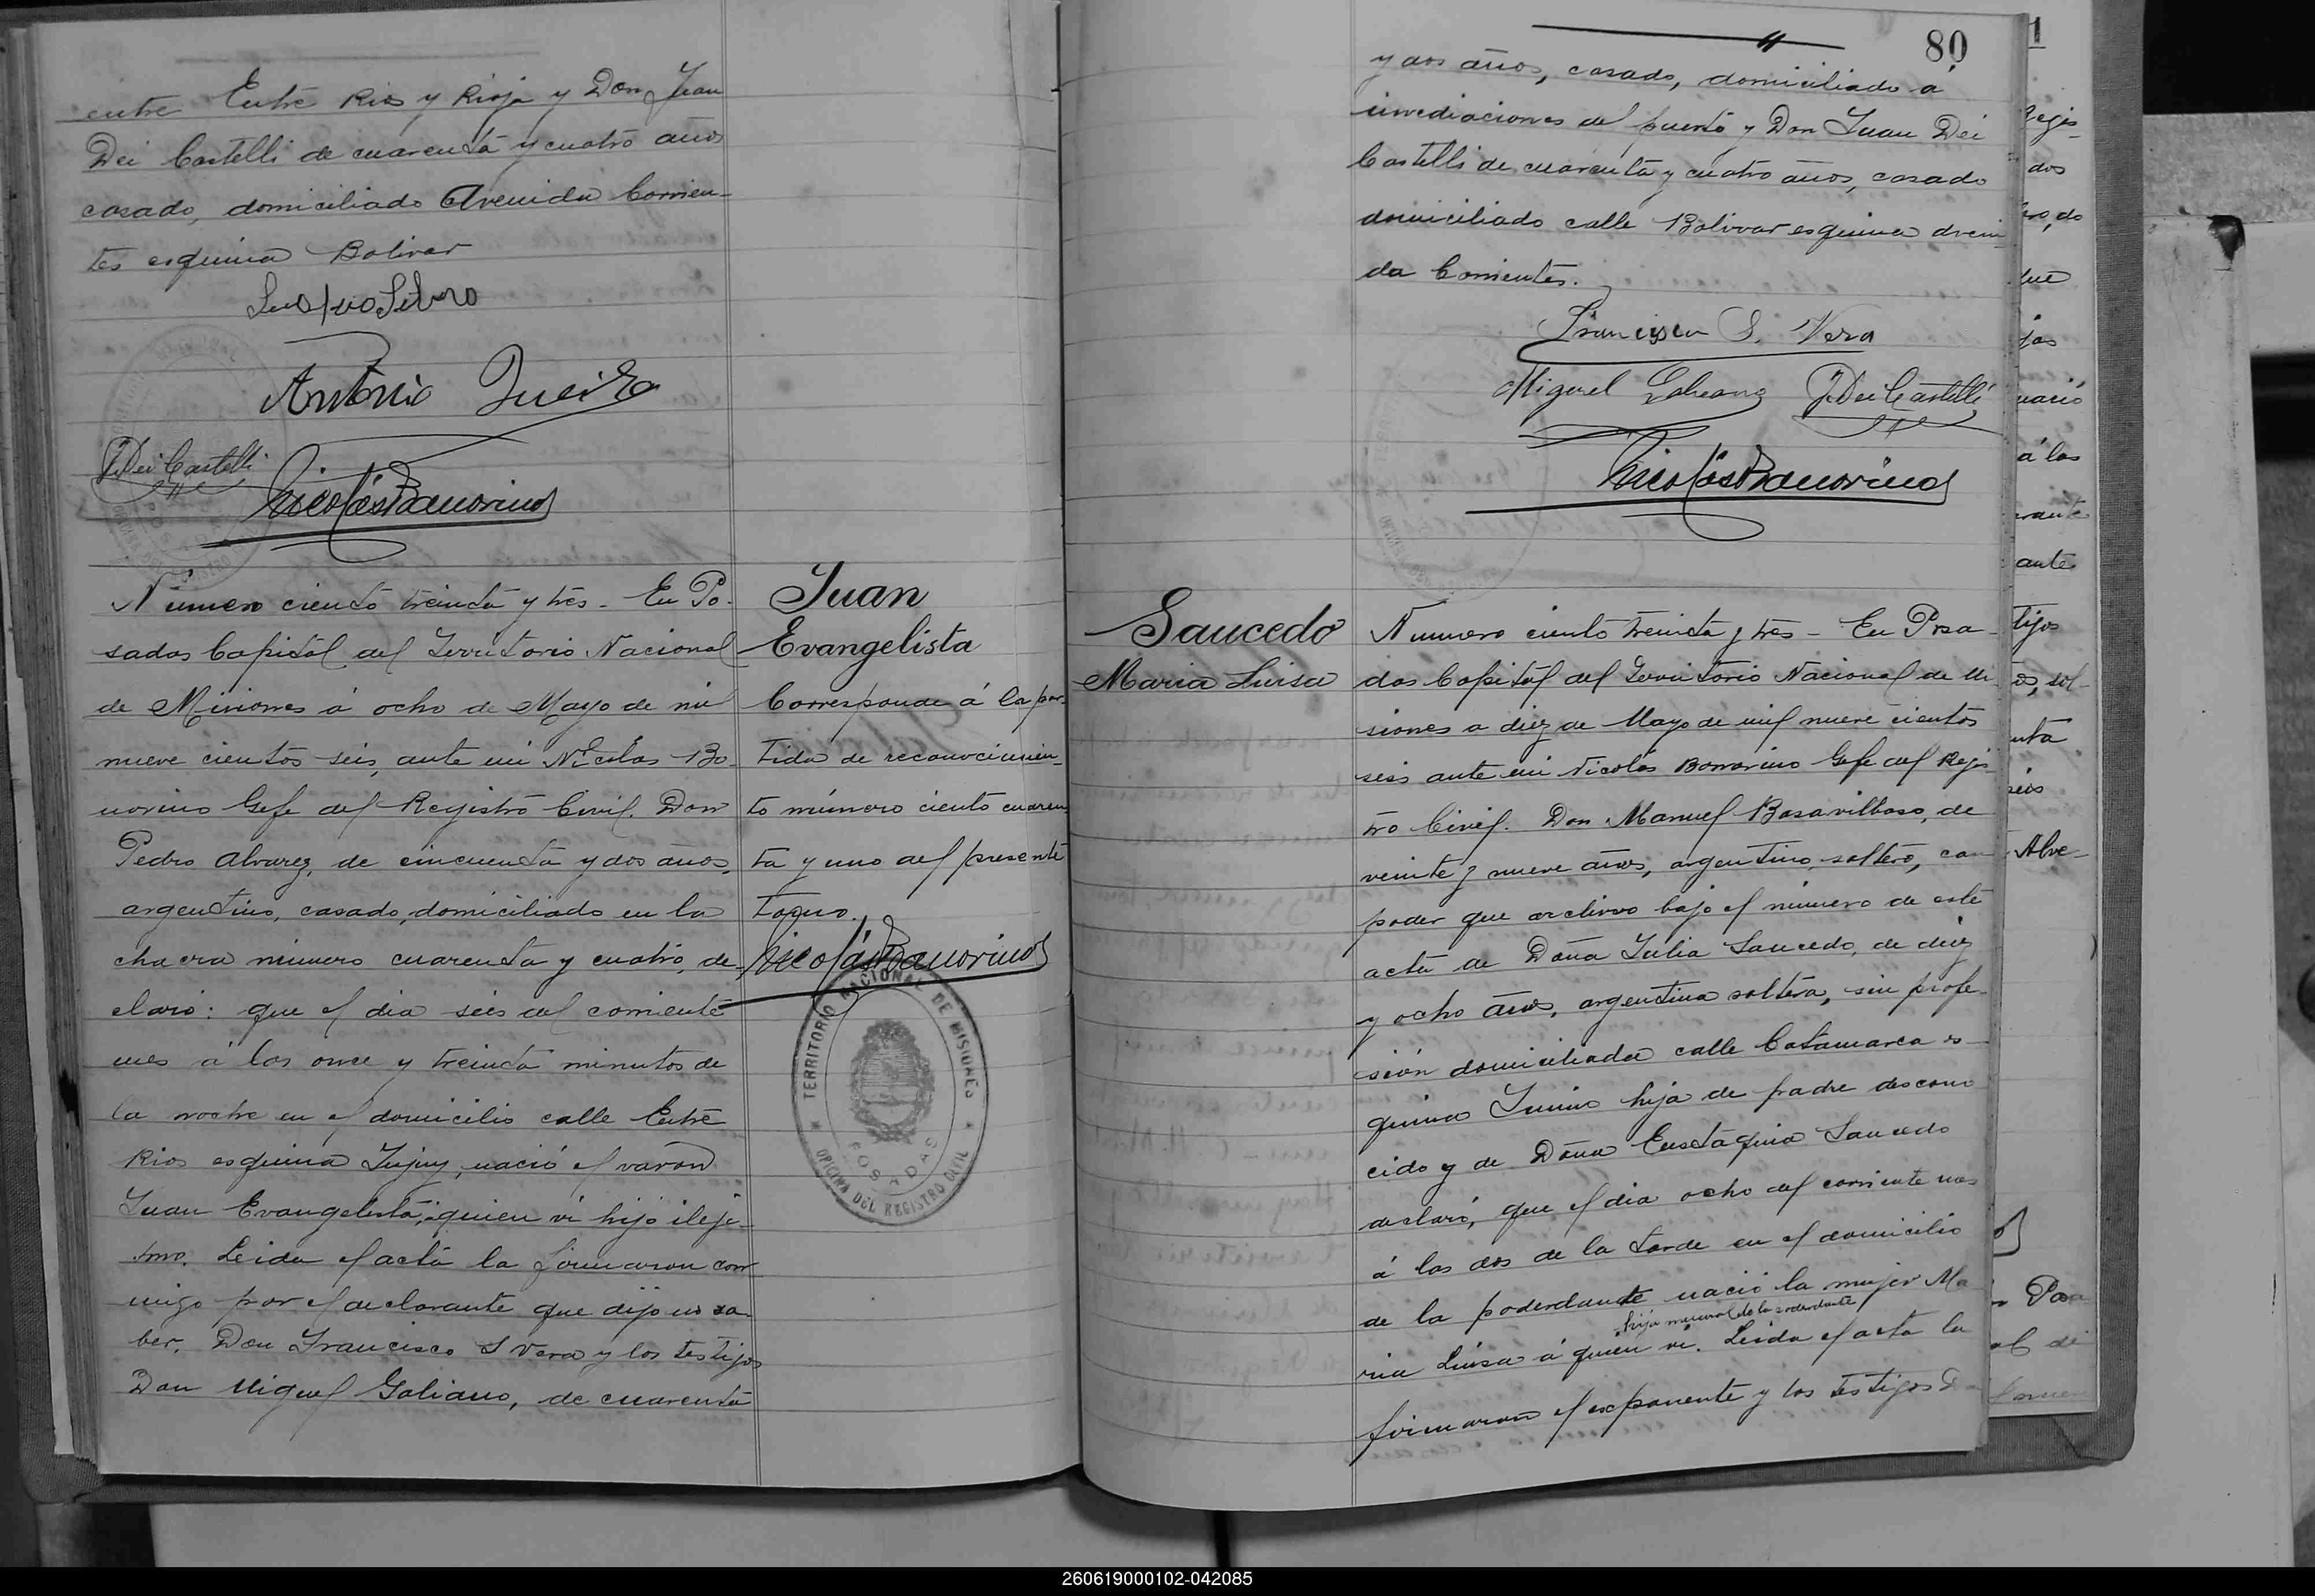 entre Entre Rios y Rioja y Don Juan
Dei Castelli de cuarenta y cuatro años
casado, domiciliado Avenida Corrien-
tes esquina Bolivar
Antonio
J. Dei Castelli
Nicolás Bonorino
Número ciento treinta y tres - En Po-
sadas Capital del Territorio Nacional
de Misiones á ocho de Mayo de mil
nueve cientos seis, ante mi Nicolas Bo-
norino Gefe del Registro Civil. Don
Pedro Alvarez, de cincuenta y dos años,
argentino, casado, domiciliado en la
chacra número cuarenta y cuatro, de-
claró: que el dia seis del corriente
mes á las once y treinta minutos de
la noche en el domicilio calle Entre
Rios esquina Jujuy, nació el varon
Juan Evangelista, á quien vi hijo ileji-
tmo. Leida el acta la firmaron con-
migo por el declarante que dijo no sa-
ber, Don Francisco S Vera y los testijos
Don Miguel Galiano, de cuarenta
Juan
Evangelista
Corresponde á la par-
tida de reconocimien-
to número ciento cuaren-
ta y uno del presente
tomo.
Nicolás Bonorino
TERRITORIO NACIONAL DE MISIONES
POSADAS
OFICINA DEL REGISTRO CIVIL
80
y dos años, casado, domiciliado á
inmediaciones del puerto y Don Juan Dei
Castelli de cuarenta y cuatro años, casado
domiciliado calle Bolivar esquina Aveni
da Corrientes.
Francisco S. Vera
Miguel Galeano J. Dei Castelli
Nicolás Bonorino
Saucedo
Maria Luisa
Numero ciento treinta y tres - En Posa-
das Capital del Territorio Nacional de Mi-
siones a diez de Mayo de mil nueve cientos
seis ante mi Nicolás Bonorino Gefe del Regis
tro Civil. Don Manuel Basavilbaso, de
veinte y nueve años, argentino, soltero, con
poder que archivo bajo el número de este
acta de Doña Julia Saucedo, de diez
y ocho años, argentina soltera, sin profe-
sión domiciliada calle Catamarca es-
quina Junin hija de padre descono
cido y de Doña Eustaquia Saucedo
declaró, que el dia ocho del corriente mes
á las dos de la tarde en el domicilio
de la poderdante nació la mujer Ma
hija natural de la poderdante
ria Luisa á quien vi. Leida el acta la
firmaron el exponente y los testigos D
1
Regis-
dos
que
á las
ante
tijos
Alve-